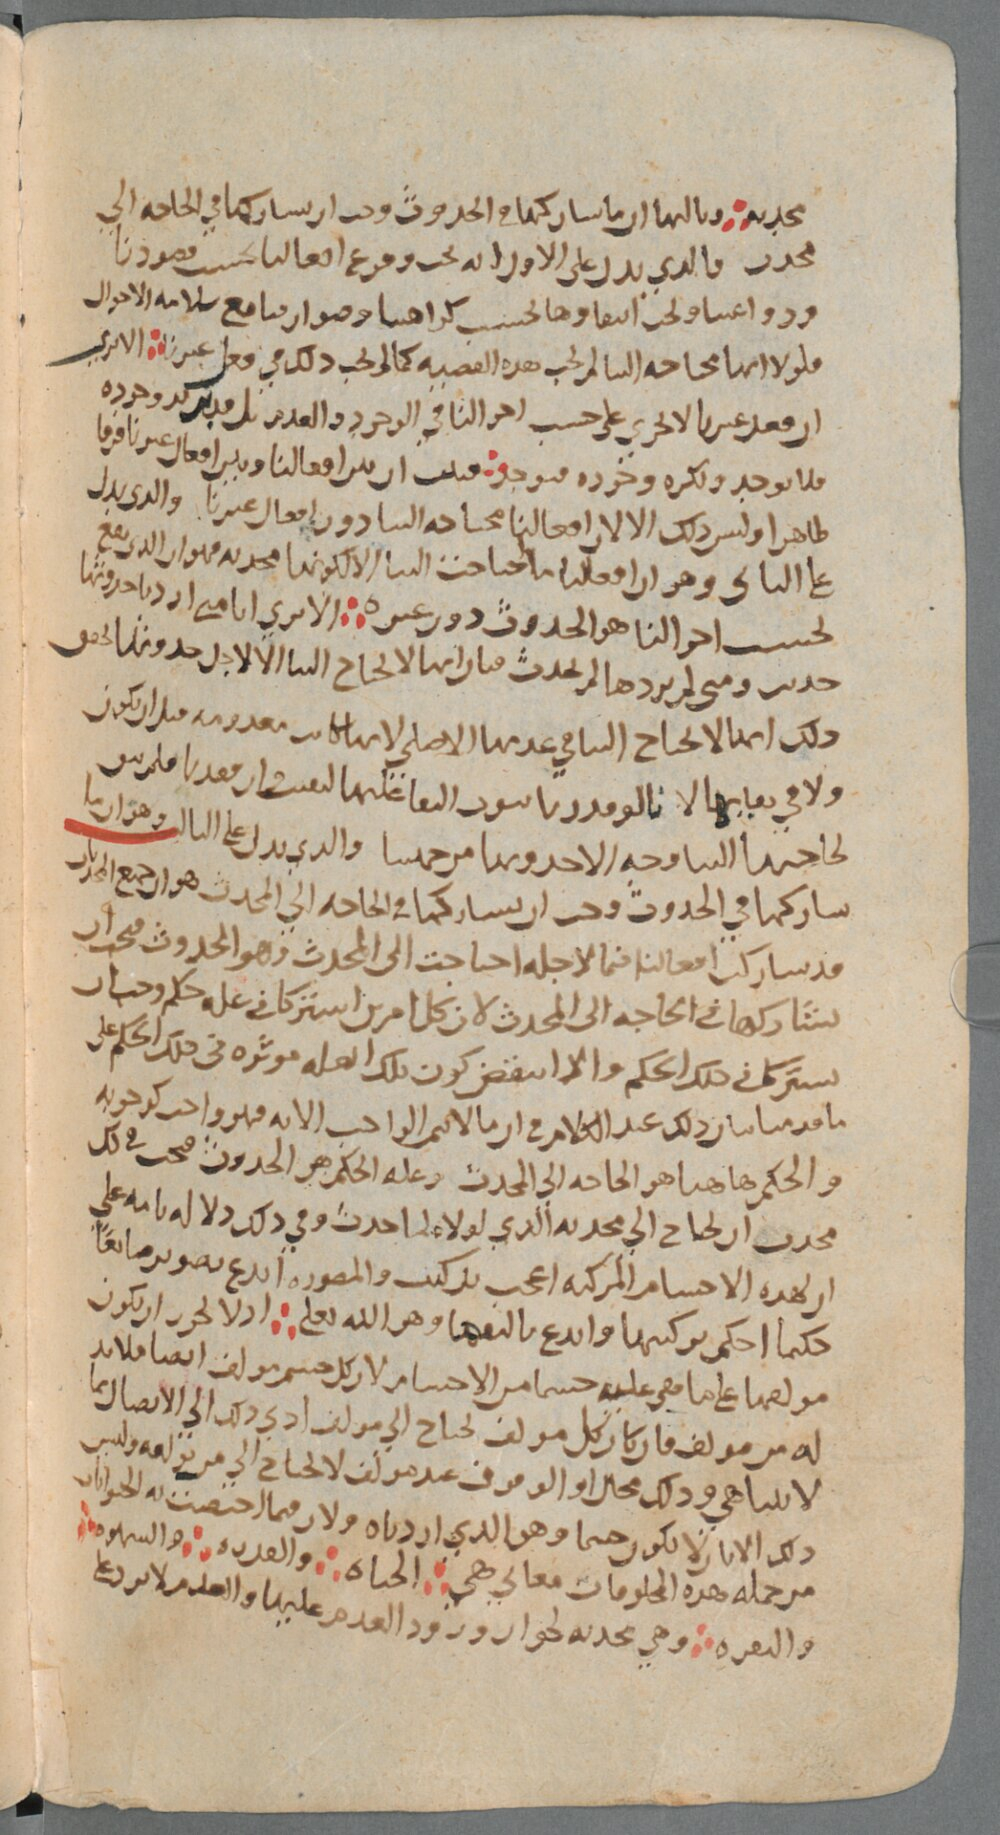 محدثه وثالثها ان ما شاركها في الحدوث وجب ان يشاركها في الحاجة الى
محدث فالذي يدل على الاول انه يجب وقوع افعالنا بحسب قصودنا
ودواعينا ويجب انتفاوها بحسب كراهتنا وصوارفنا مع سلامة الاحوال
فلولا انها محتاجه الينا لم تجب هذه القضيه كما لم يجب ذلك في فعل غيرنا الا ترى
ان فعل غيرنا لا يجري على حسب احوالنا في الوجود والعدم بل قد نريد وجوده
فلا يوجد ونكره وجوده فيوجد فثبت ان بين افعالنا وبين افعال غيرنا فرقا
ظاهرا وليس ذلك الا لان افعالنا محتاجه الينا دون افعال غيرنا والذي يدل
على الثاني وهو ان افعالنا ما احتاجت الينا الا لكونها محدثه فهو ان الذي يقع
بحسب احوالنا هو الحدوث دون غيره الا ترى انا متى اردنا حدوثها
حدثت ومتى لم نردها لم تحدث فبان انها لا تحتاج الينا الا لاجل حدوثها يحقق
ذلك انها لا تحتاج الينا في عدمها الاصلي لانها كانت معدومه قبل ان نكون
ولا في بقايها لانا لو قدرنا ثبوت البقا عليها لبقيت وان فقدنا فلم يبق
لحاجتها الينا وجه الا حدوثها من جهتنا والذي يدل على الثالث وهو ان ما
شاركها في الحدوث وجب ان يشاركها في الحاجه الى المحدث هو ان جميع المحدثات
قد شاركت افعالنا فيما لاجله احتاجت الى المحدث وهو الحدوث فيجب ان
تشاركها في الحاجه الى المحدث لان كل امرين اشتركا في علة حكم وجب ان
يشتركا في ذلك الحكم والا انتقض كون تلك العله موثره في ذلك الحكم على
ما قدمنا بيان ذلك عند الكلام في ان ما لا يتم الواجب الا به فهو واجب كوجوبه
والحكم هاهنا هو الحاجه الى المحدث وعلة الحكم هو الحدوث فيجب في كل
محدث ان يحتاج الى محدثه الذي لولاه لما حدث وفي ذلك دلاله تامه على
ان لهذه الاجسام المركبه اعجب تركيب والمصوره ابدع تصوير صانعًا
حكيما احكم تركيبها وابدع تاليفها وهو الله تعلى اذ لا يجوز ان يكون
مولفها على ما هي عليه جسما من الاجسام لان كل جسم مولف ايضا فلا بد
له من مولف فان كان كل مولف يحتاج الى مولف ادى ذلك الى الاتصال بما
لا يتناهى وذلك محال او الوقوف عند مولف لا يحتاج الى من يولفه وليس
ذلك الا بان لا يكون جسما وهو الذي اردناه ولان فيما اختصت به الحيوانات
من جمله هذه المخلوقات معاني هي الحياه والقدره والشهوه
والنفره وهي محدثه لجواز ورود العدم عليها والعدم لا يرد على